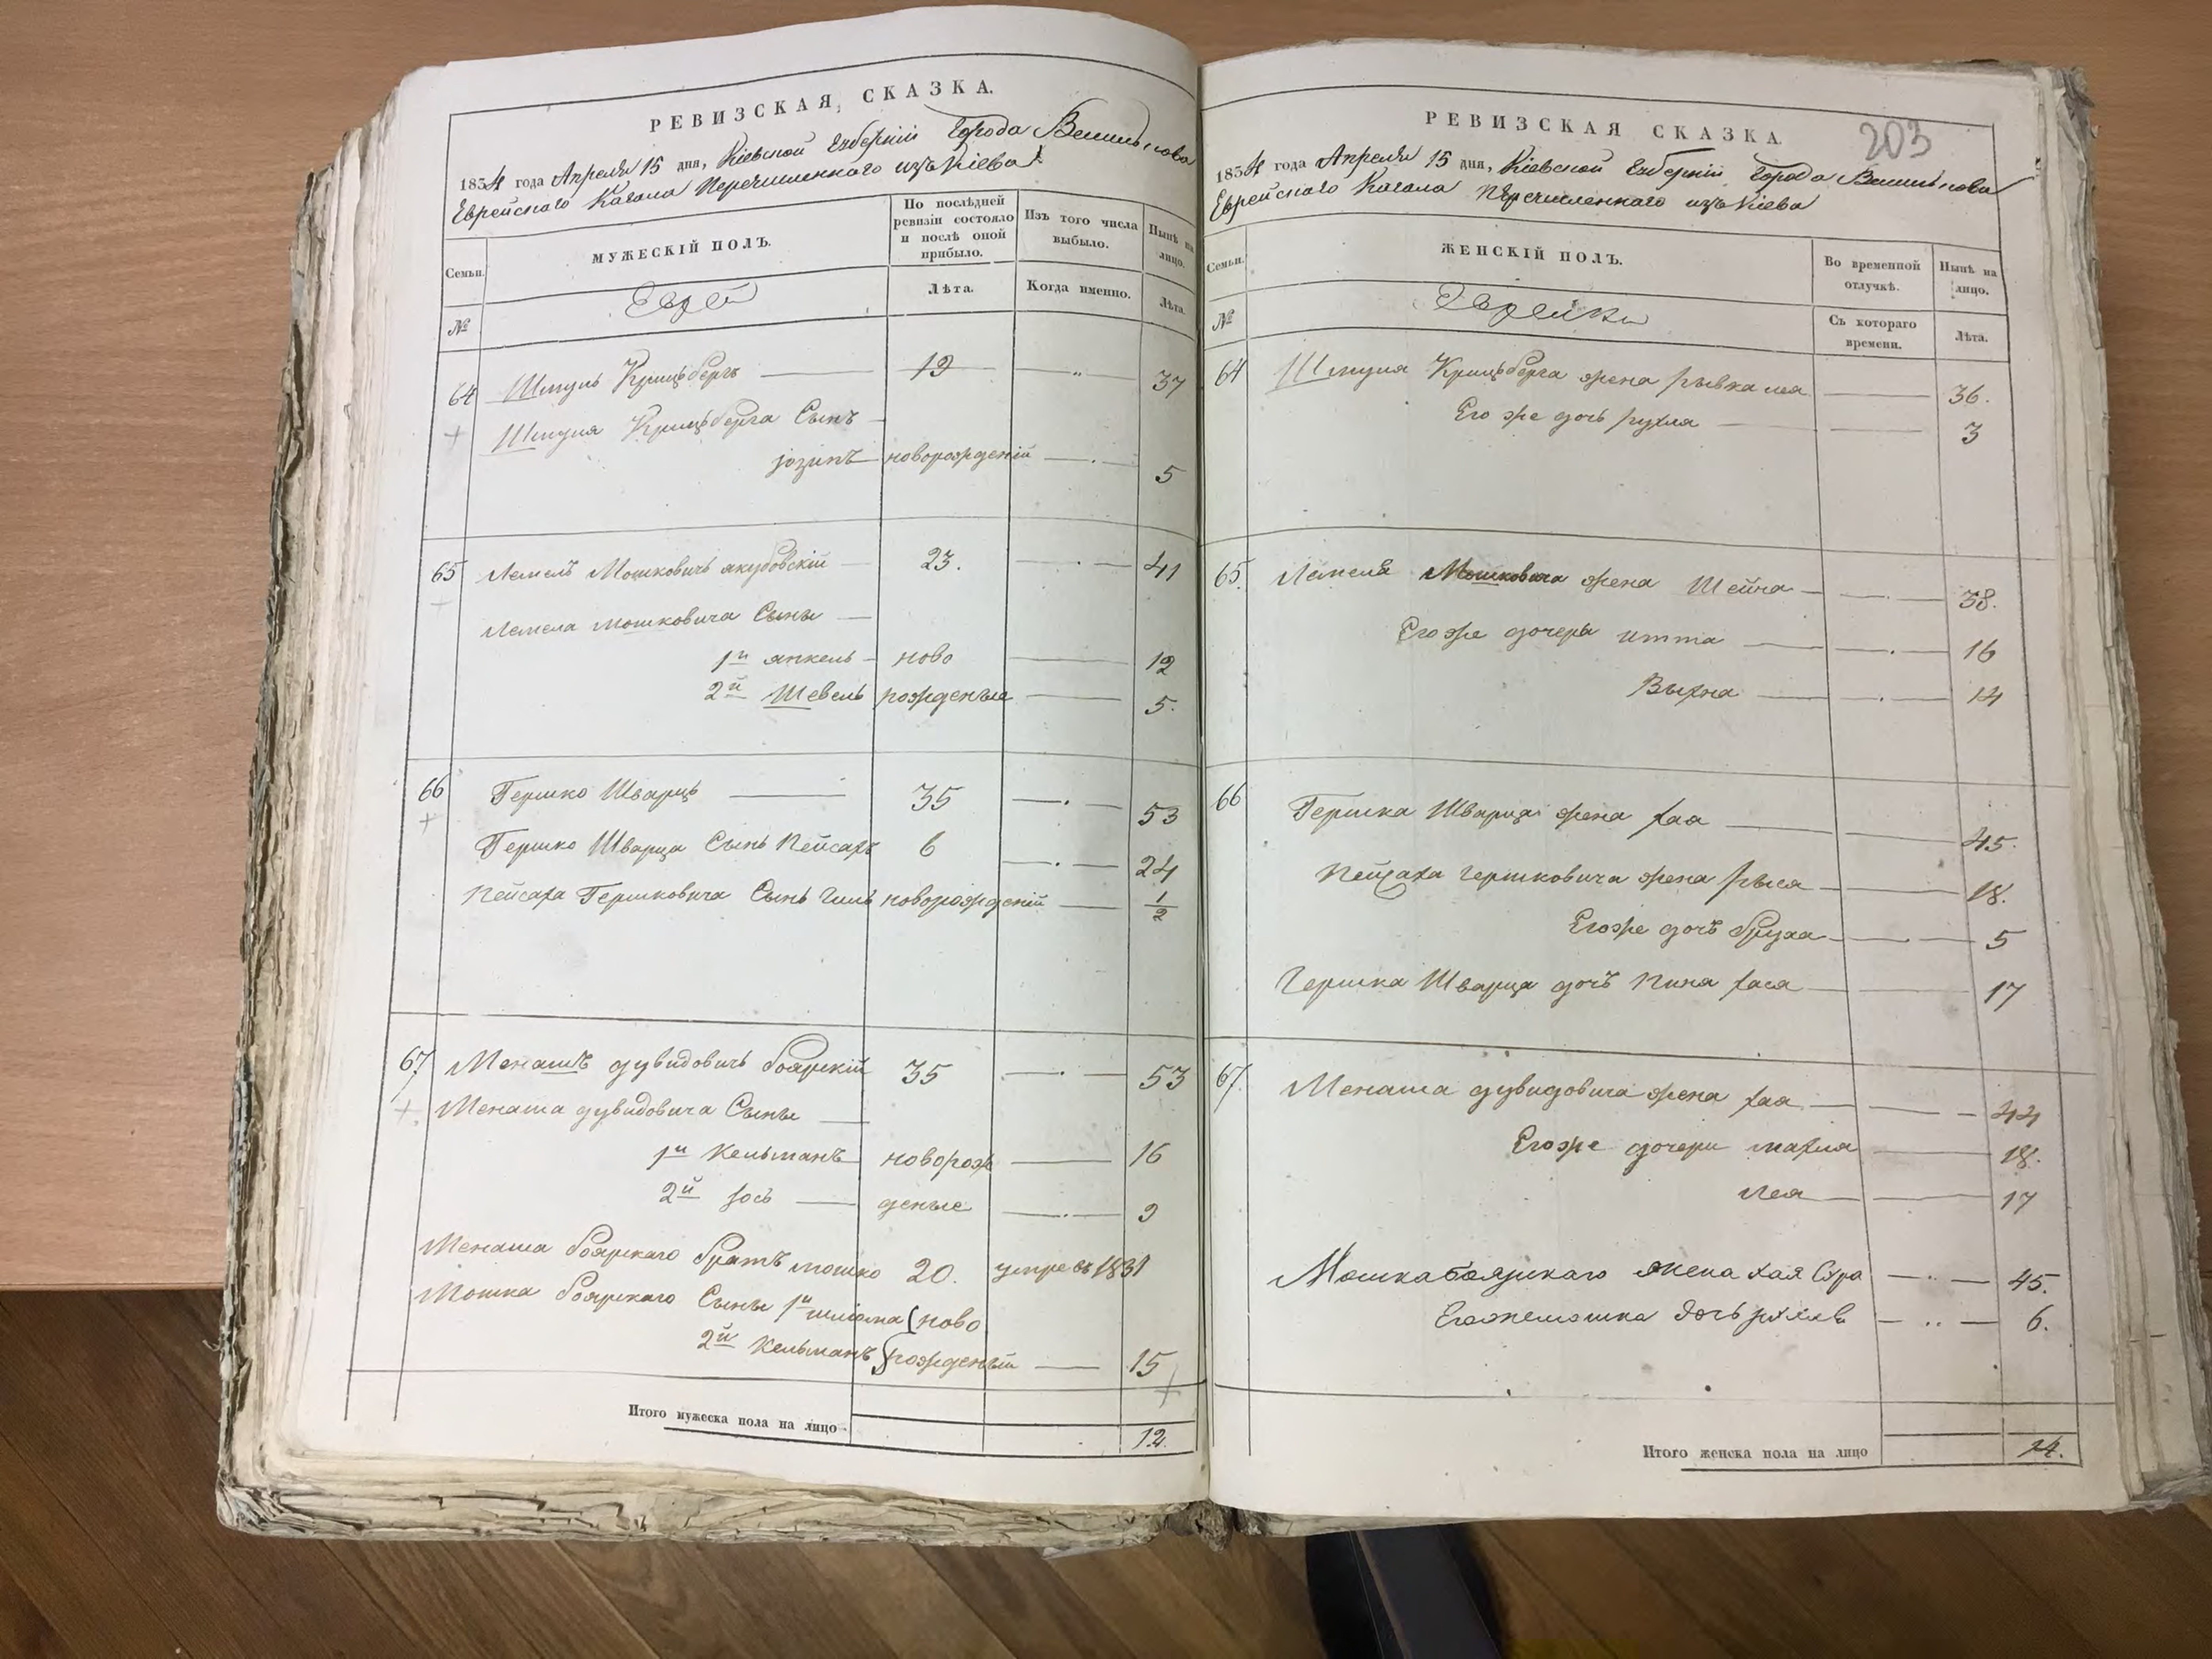 РЕВИЗСКАЯ СКАЗКА.
1834 года Апреля 15 дня, Кіевской Губерніи Города Василькова
Еврейскаго Кагала Перечисленнаго изъ Кіева
Семьи.
МУЖЕСКІЙ ПОЛЪ.
По послѣдней ревизіи состояло и послѣ оной прибыло.
Изъ того числа выбыло.
Нынѣ на лицо.
№
Евреи
Лѣта.
Когда именно.
Лѣта.
64 Шмуль Крицбергъ 19 37
Шмуля Крицберга Сынъ
іозипъ новорожденій 5
65 Лемель Мошковичъ якубовскій 23. 41
Лемела мошковича Сыны
1й янкель ново 12
2й Шевель рожденые 5.
66 Гершко Шварцъ 35 53
Гершко Шварца Сынъ Пейсахъ 6 24
Пейсаха Гершковича Сынъ новорожденій 1/2
67 Менашъ дувидовичъ боярскій 35 53
Менаша дувидовича Сыны
1й Кельманъ новорож 16
2й іось деные 9
Менаша боярскаго братъ мошко 20. умре въ 1831
Мошка боярскаго Сыны 1й шліома ново
2й Кельманъ рожденый 15
Итого мужеска пола на лицо 12.
203
РЕВИЗСКАЯ СКАЗКА.
1834 года Апреля 15 дня, Кіевской Губерніи Города Василькова
Еврейскаго Кагала Перечисленнаго изъ Кіева
Семьи.
ЖЕНСКІЙ ПОЛЪ.
Во временной отлучкѣ.
Нынѣ на лицо.
№
Еврейки
Съ котораго времени.
Лѣта.
64 Шмуля Крицберга жена рывка лея 36.
Его же дочь рухля 3
65. Лемеля Мошковича жена Шейна 38.
Его же дочеры итта 16
Выхна 14
66 Гершка Шварца жена хая 45.
Пейсаха гершковича жена рыся 18.
Егоже дочъ бруха 5
Гершка Шварца дочъ хася 17
67. Менаша дувидовича жена хая 44
Егоже дочери махля 18.
лея 17
Мошка боярскаго жена хая Сура 45.
Егоже мошка дочь 6.
Итого женска пола на лицо 14.